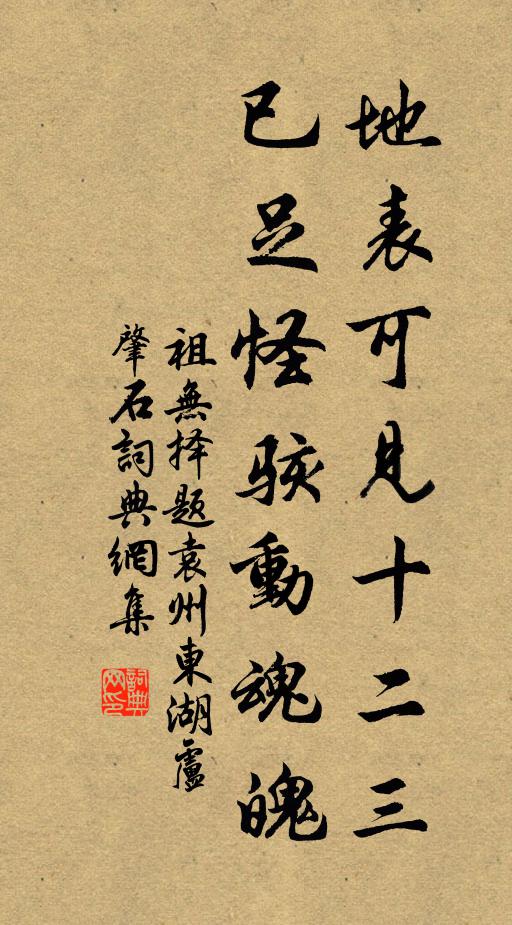 地表可見十二三
已足怪骇動魂魄
祖無择题袁州東湖盧
肇石詞典網集
詞典网印